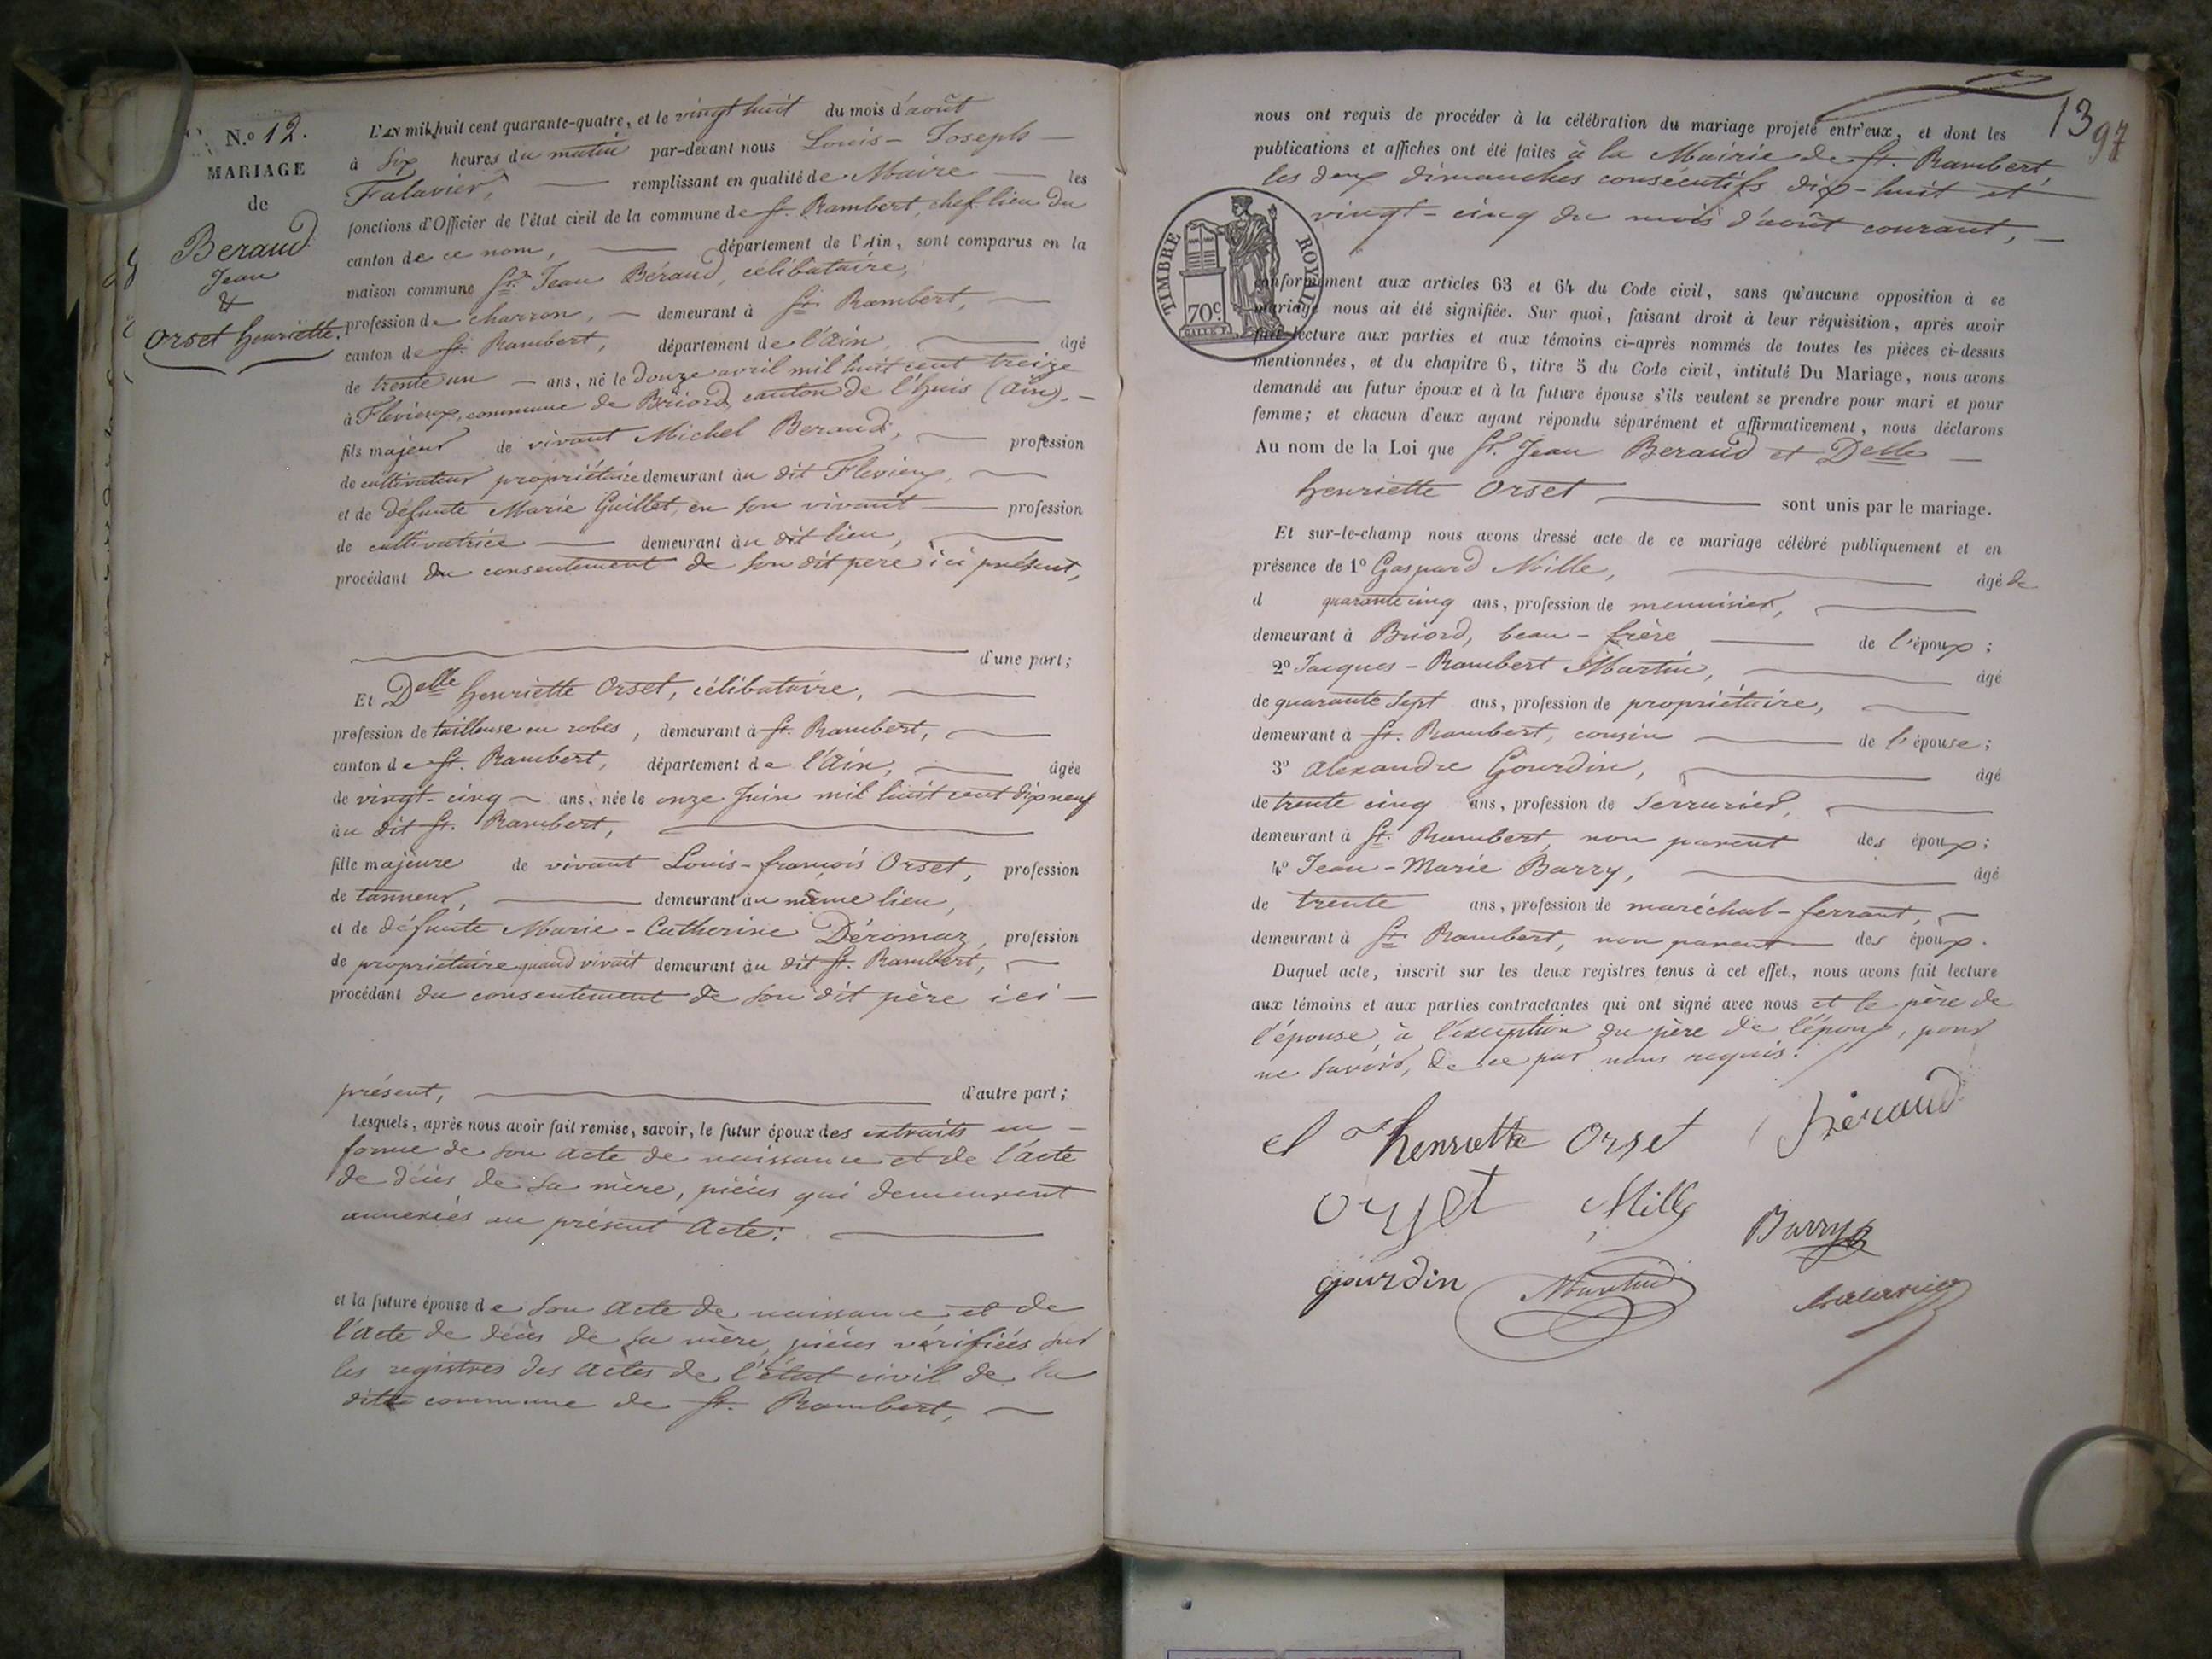 N.o 12.
MARIAGE
de
Beraud
Jean
&
Orset henriette.
L'AN mil huit cent quarante-quatre, et le vingt huit du mois d'août
à six heures du matin par-devant nous Louis-Joseph
Falavier, remplissant en qualité de Maire les
fonctions d'Officier de l'état civil de la commune de St. Rambert, chef-lieu du
canton de ce nom, département de l'Ain, sont comparus en la
maison commune Sr. Jean Béraud, célibataire,
profession de charron, demeurant à St Rambert,
canton de St. Rambert, département de l'ain, âgé
de trente un ans, né le douze avril mil huit cent treize
à Flevieux, commune de Briord, canton de l'huis (ain).
fils majeur de vivant Michel Beraud, profession
de cultivateur propriétaire demeurant au dit Flevieux,
et de défunte Marie Guillet, en son vivant profession
de cultivatrice demeurant au dit lieu,
procédant du consentement de son dit pere ici présent,
d'une part;
Et Delle henriette Orset, célibataire,
profession de tailleuse en robes, demeurant à St. Rambert,
canton de St. Rambert, département de l'ain, âgée
de vingt-cinq ans, née le onze Juin mil huit cent dix neuf
au dit St. Rambert,
fille majeure de vivant Louis-françois Orset, profession
de tanneur, demeurant au même lieu,
et de défunte Marie-Catherine Déromaz, profession
de propriétaire quand vivait demeurant au dit St. Rambert,
procédant du consentement de son dit père ici-
présent, d'autre part;
Lesquels, après nous avoir fait remise, savoir, le futur époux des extraits en
forme de son acte de naissance et de l'acte
de décès de sa mère, pièces qui demeurent
annexées au présent Acte;
et la future épouse de son acte de naissance et de
l'acte de décès de sa mère, pièces vérifiées sur
les registres des actes de l'état civil de la
ditte commune de St. Rambert,
13
97
nous ont requis de procéder à la célébration du mariage projeté entr'eux, et dont les
publications et affiches ont été faites à la Mairie de St. Rambert,
les deux dimanches consécutifs dix-huit et
vingt-cinq du mois d'août courant,
TIMBRE ROYAL
70c
conformément aux articles 63 et 64 du Code civil, sans qu'aucune opposition à ce
mariage nous ait été signifiée. Sur quoi, faisant droit à leur réquisition, après avoir
fait lecture aux parties et aux témoins ci-après nommés de toutes les pièces ci-dessus
mentionnées, et du chapitre 6, titre 5 du Code civil, intitulé Du Mariage, nous avons
demandé au futur époux et à la future épouse s'ils veulent se prendre pour mari et pour
femme; et chacun d'eux ayant répondu séparément et affirmativement, nous déclarons
Au nom de la Loi que Sr. Jean Beraud et Delle
henriette Orset sont unis par le mariage.
Et sur-le-champ nous avons dressé acte de ce mariage célébré publiquement et en
présence de 1o Gaspard Mille, âgé de
d quarante cinq ans, profession de menuisier,
demeurant à Briord, beau-frère de l'époux;
2o Jacques-Rambert Martin, âgé
de quarante sept ans, profession de propriétaire,
demeurant à St. Rambert, cousin de l'épouse;
3o Alexandre Gourdin, âgé
de trente cinq ans, profession de Serrurier,
demeurant à St. Rambert, non parent des époux;
4o Jean-Marie Barry, âgé
de trente ans, profession de maréchal-ferrant,
demeurant à St Rambert, non parent des époux.
Duquel acte, inscrit sur les deux registres tenus à cet effet, nous avons fait lecture
aux témoins et aux parties contractantes qui ont signé avec nous et le père de
l'épouse, à l'exception du père de l'époux, pour
ne savoir, de ce par nous requis.
henriette Orset Béraud
orset Mille Barry
gourdin Martin Falavier